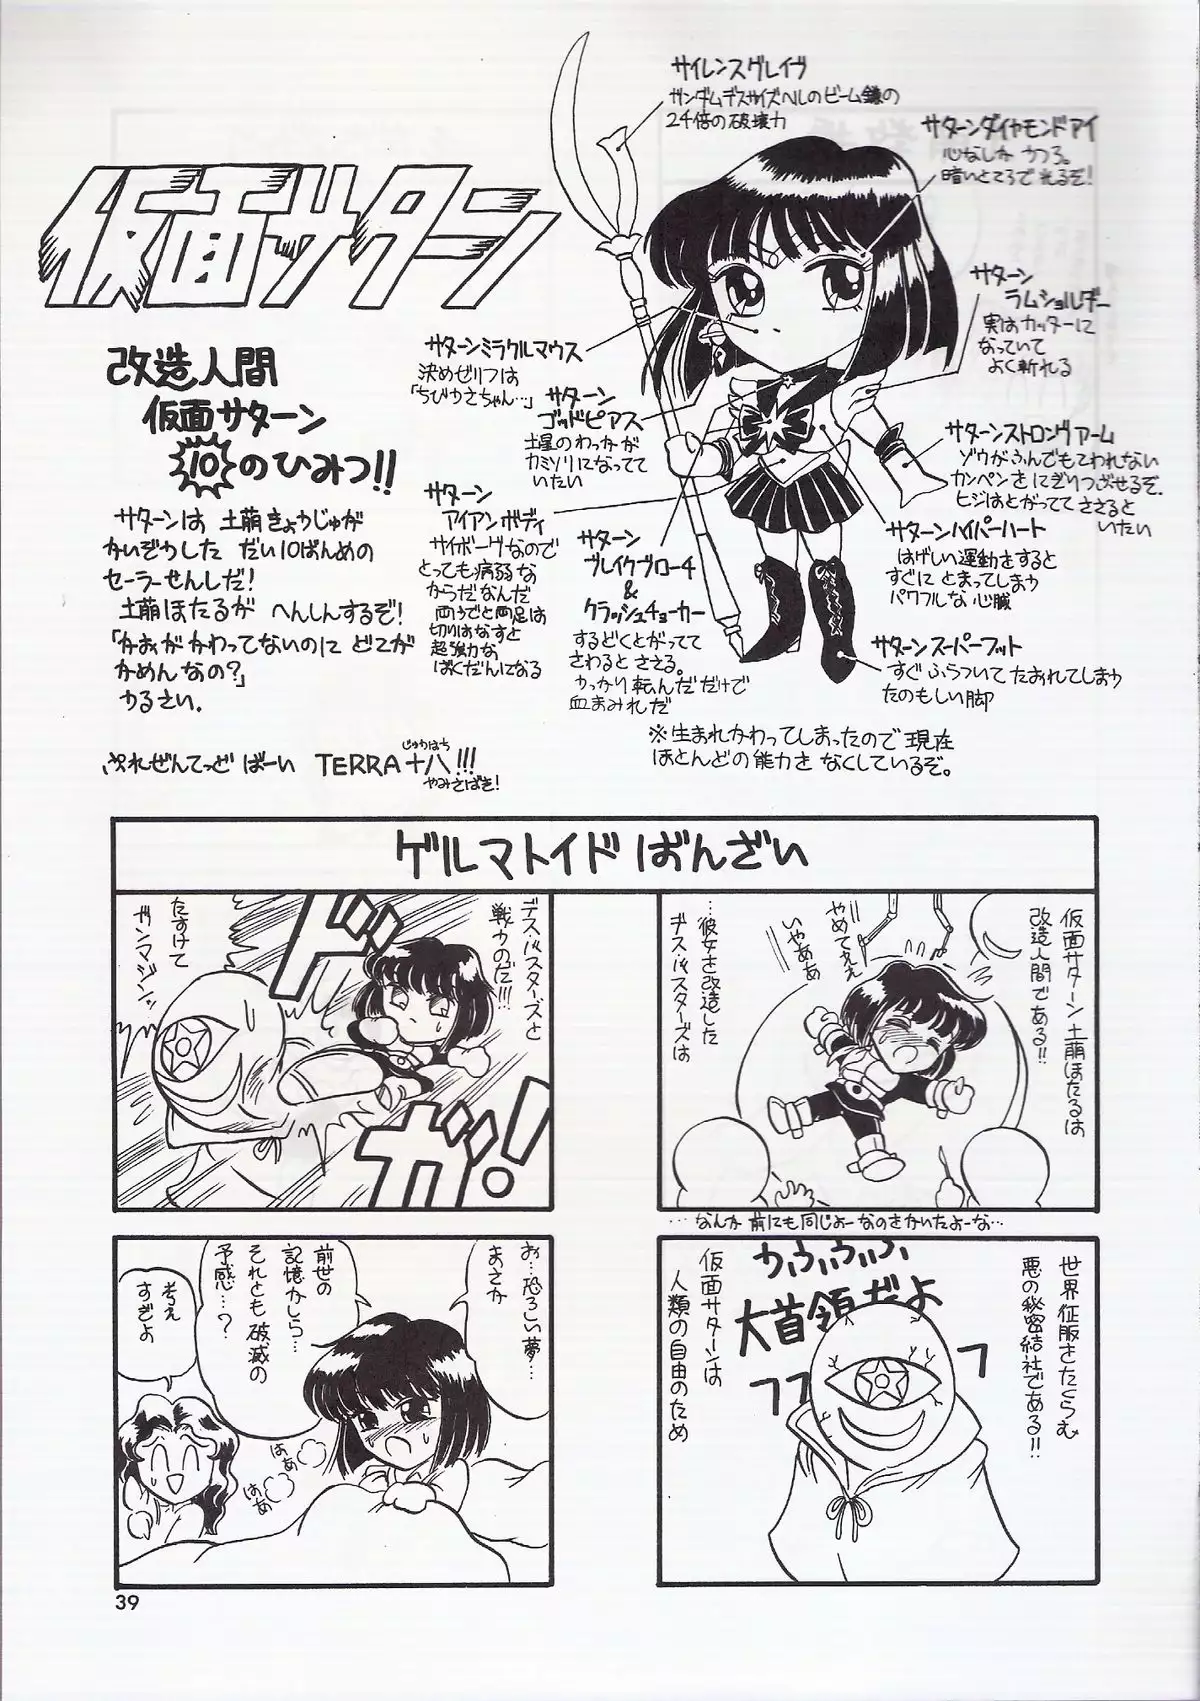 仮面サターン
改造人間
仮面サターン
10のひみつ!!
サターンは 土萠きょうじゅが
かいぞうした だい10ばんめの
セーラーせんしだ!
土萠ほたるが へんしんするぞ!
「かおが かわってないのに どこが
かめんなの?」
うるさい.
ぷれぜんてっど ばーい TERRA十八!!!
じゅうはち
やみさばき!
サイレンスグレイヴ
ガンダムデスサイズヘルのビーム鎌の
24倍の破壊力
サターンダイヤモンドアイ
心なしか うつろ。
暗いところで光るぞ!
サターン
ラムショルダー
実はカッターに
なっていて
よく斬れる
サターンミラクルマウス
決めぜリフは
「ちびうさちゃん…」
サターン
ゴッドピアス
土星のわっかが
カミソリになってて
いたい
サターンストロングアーム
ゾウがふんでもこわれない
カンペンをにぎりつぶせるぞ.
ヒジはとがってて ささると
いたい
サターン
アイアンボディ
サイボーグなので
とっても病弱な
からだなんだ
両うでと両足は
切りはなすと
超強力な
ばくだんになる
サターン
ブレイクブローチ
&
クラッシュチョーカー
するどくとがってて
さわると ささる。
うっかり転んだだけで
血まみれだ
サターンハイパーハート
はげしい運動をすると
すぐに とまってしまう
パワフルな 心臓
サターンスーパーフット
すぐ ふらついて たおれてしまう
たのもしい脚
※生まれかわってしまったので 現在
ほとんどの能力を なくしているぞ。
ゲルマトイド ばんざい
仮面サターン 土萠ほたるは
改造人間である!!
やめてぇぇ
いやああ
…彼女を改造した
デス・バスターズは
…なんか 前にも同じよーなのをかいたよーな…
世界征服をたくらむ
悪の秘密結社である!!
うふふふふ
大首領だよ
フ
フフ
仮面サターンは
人類の自由のため
デス・バスターズと
戦うのだ!!!
ドガ!
たすけて
ガンマジンッ
お…恐ろしい夢…
まさか
前世の
記憶かしら…
それとも破滅の
予感…?
はあ
はあ
考え
すぎよ
39